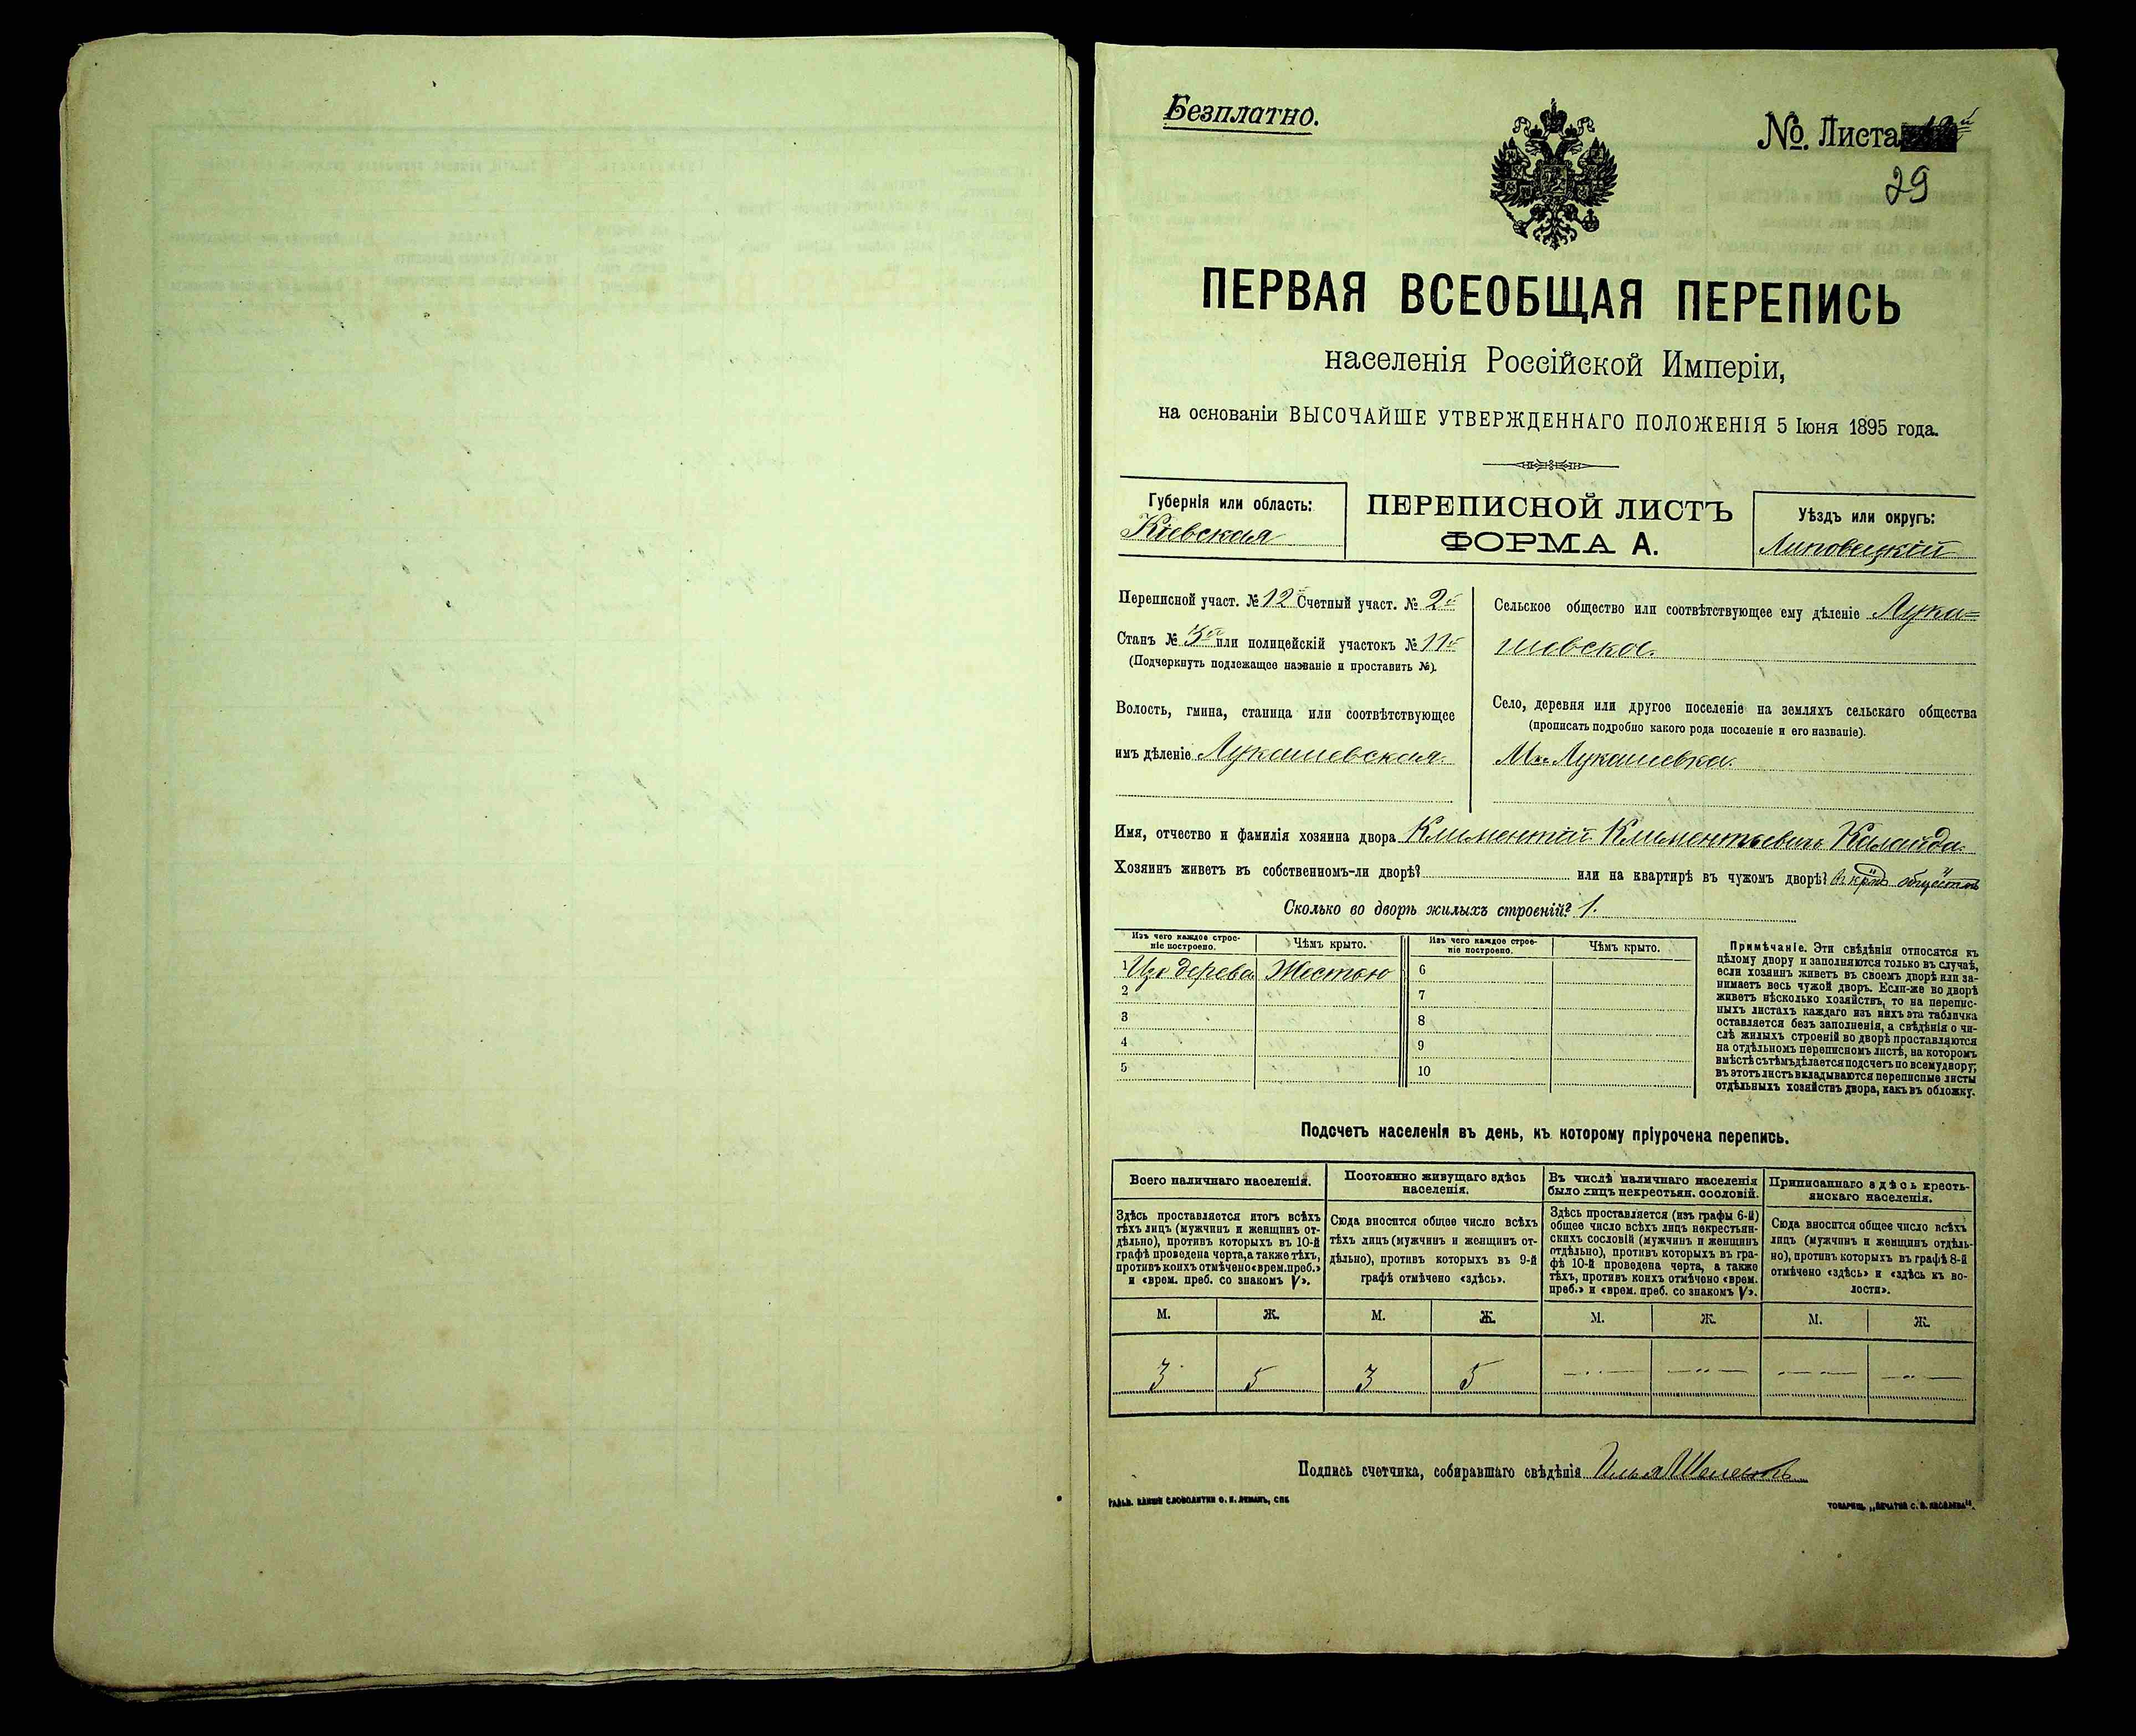 Безплатно.
№. Листа
29
ПЕРВАЯ ВСЕОБЩАЯ ПЕРЕПИСЬ
населенія Россійской Имперіи,
на основаніи ВЫСОЧАЙШЕ УТВЕРЖДЕННАГО ПОЛОЖЕНІЯ 5 Іюня 1895 года.
Губернія или область:
Кіевская
ПЕРЕПИСНОЙ ЛИСТЪ
ФОРМА А.
Уѣздъ или округъ:
Липовецкій
Переписной участ. № 12й Счетный участ. № 2й
Станъ № 3й или полицейскій участокъ № 11й
(Подчеркнуть подлежащее названіе и проставить №).
Волость, гмина, станица или соотвѣтствующее
имъ дѣленіе Лукашевская.
Сельское общество или соотвѣтствующее ему дѣленіе Лука=
шевское.
Село, деревня или другое поселеніе на земляхъ сельскаго общества
(прописать подробно какого рода поселеніе и его названіе).
М. Лукашевка.
Имя, отчество и фамилія хозяина двора Климентій Климентьевичъ Каланда.
Хозяинъ живетъ въ собственномъ-ли дворѣ? или на квартирѣ въ чужомъ дворѣ?
Сколько во дворѣ жилыхъ строеній? 1.
Изъ чего каждое строе-
ніе построено.
Чѣмъ крыто.
Изъ чего каждое строе-
ніе построено.
Чѣмъ крыто.
1 Изъ дерева Жестью
2
3
4
5
6
7
8
9
10
Примѣчаніе. Эти свѣдѣнія относятся къ
цѣлому двору и заполняются только въ случаѣ,
если хозяинъ живетъ въ своемъ дворѣ или за-
нимаетъ весь чужой дворъ. Если-же во дворѣ
живетъ нѣсколько хозяйствъ, то на перепис-
ныхъ листахъ каждаго изъ нихъ эта табличка
оставляется безъ заполненія, а свѣдѣнія о чи-
слѣ жилыхъ строеній во дворѣ проставляются
на отдѣльномъ переписномъ листѣ, на которомъ
вмѣстѣ съ тѣмъ дѣлается подсчетъ по всему двору;
въ этотъ листъ вкладываются переписные листы
отдѣльныхъ хозяйствъ двора, какъ въ обложку.
Подсчетъ населенія въ день, къ которому пріурочена перепись.
Всего наличнаго населенія.
Здѣсь проставляется итогъ всѣхъ
тѣхъ лицъ (мужчинъ и женщинъ от-
дѣльно), противъ которыхъ въ 10-й
графѣ проведена черта, а также тѣхъ,
противъ коихъ отмѣчено «врем. преб.»
и «врем. преб. со знакомъ V».
Постоянно живущаго здѣсь
населенія.
Сюда вносится общее число всѣхъ
тѣхъ лицъ (мужчинъ и женщинъ от-
дѣльно), противъ которыхъ въ 9-й
графѣ отмѣчено «здѣсь».
Въ числѣ наличнаго населенія
было лицъ некрестьян. сословій.
Здѣсь проставляется (изъ графы 6-й)
общее число всѣхъ лицъ некрестьян-
скихъ сословій (мужчинъ и женщинъ
отдѣльно), противъ которыхъ въ гра-
фѣ 10-й проведена черта, а также
тѣхъ, противъ коихъ отмѣчено «врем.
преб.» и «врем. преб. со знакомъ V».
Приписаннаго здѣсь кресть-
янскаго населенія.
Сюда вносится общее число всѣхъ
лицъ (мужчинъ и женщинъ отдѣль-
но), противъ которыхъ въ графѣ 8-й
отмѣчено «здѣсь» и «здѣсь къ во-
лости».
М. Ж. М. Ж. М. Ж. М. Ж.
3 5 3 5 — — — —
Подпись счетчика, собиравшаго свѣдѣнія Илья
ГАЛЬВ. КЛИШЕ СЛОВОЛИТНИ О. И. ЛЕМАНЪ, СПБ.
ТОВАРИЩ. „ПЕЧАТНЯ С. П. ЯКОВЛЕВА“.